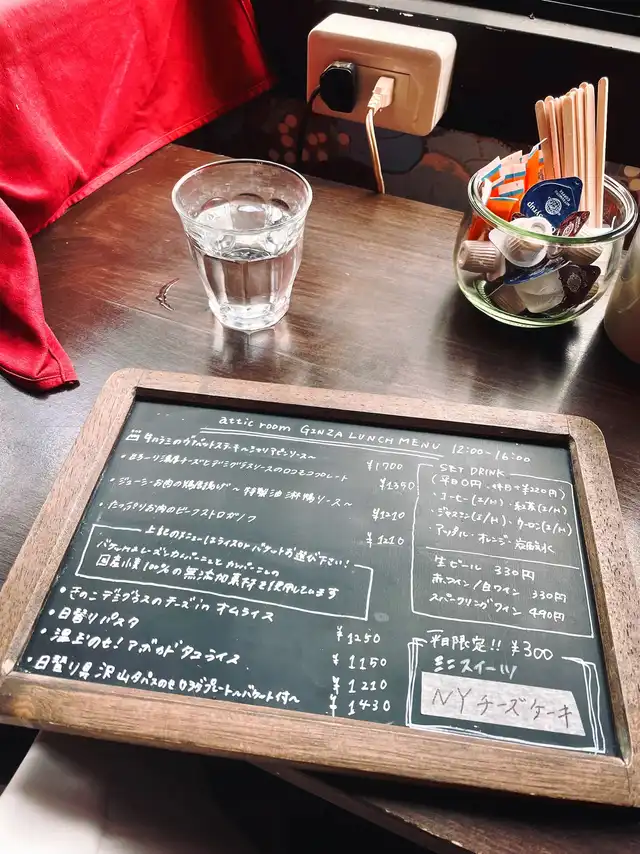 attic room GINZA LUNCH MENU 12:00-16:00
牛ハラミのカットステーキ〜シャリアピンソース〜 ¥1700
・とろ〜り濃厚チーズとデミグラスソースのロコモコプレート ¥1350
・ジューシーお肉の鶏唐揚げ〜特製油淋鶏ソース〜 ¥1210
・たっぷりお肉のビーフストロガノフ ¥1210
上記のメニューはライスorバケットお選び下さい!
バケットはレーズンカンパーニュとカンパーニュの
国産小麦100%の無添加素材を使用しています
・きのこデミグラスのチーズin オムライス ¥1250
・日替りパスタ ¥1150
・温玉のせ!アボカドタコライス ¥1210
・日替り具沢山タパスのせワンプレート〜バケット付〜 ¥1430
SET DRINK
(平日0円、休日+¥220円)
・コーヒー(I/H)・紅茶(I/H)
・ジャスミン(I/H)・ウーロン(I/H)
・アップル・オレンジ・炭酸水
生ビール 330円
赤ワイン/白ワイン 330円
スパークリングワイン 490円
平日限定!! ¥300
ミニスイーツ
NYチーズケーキ